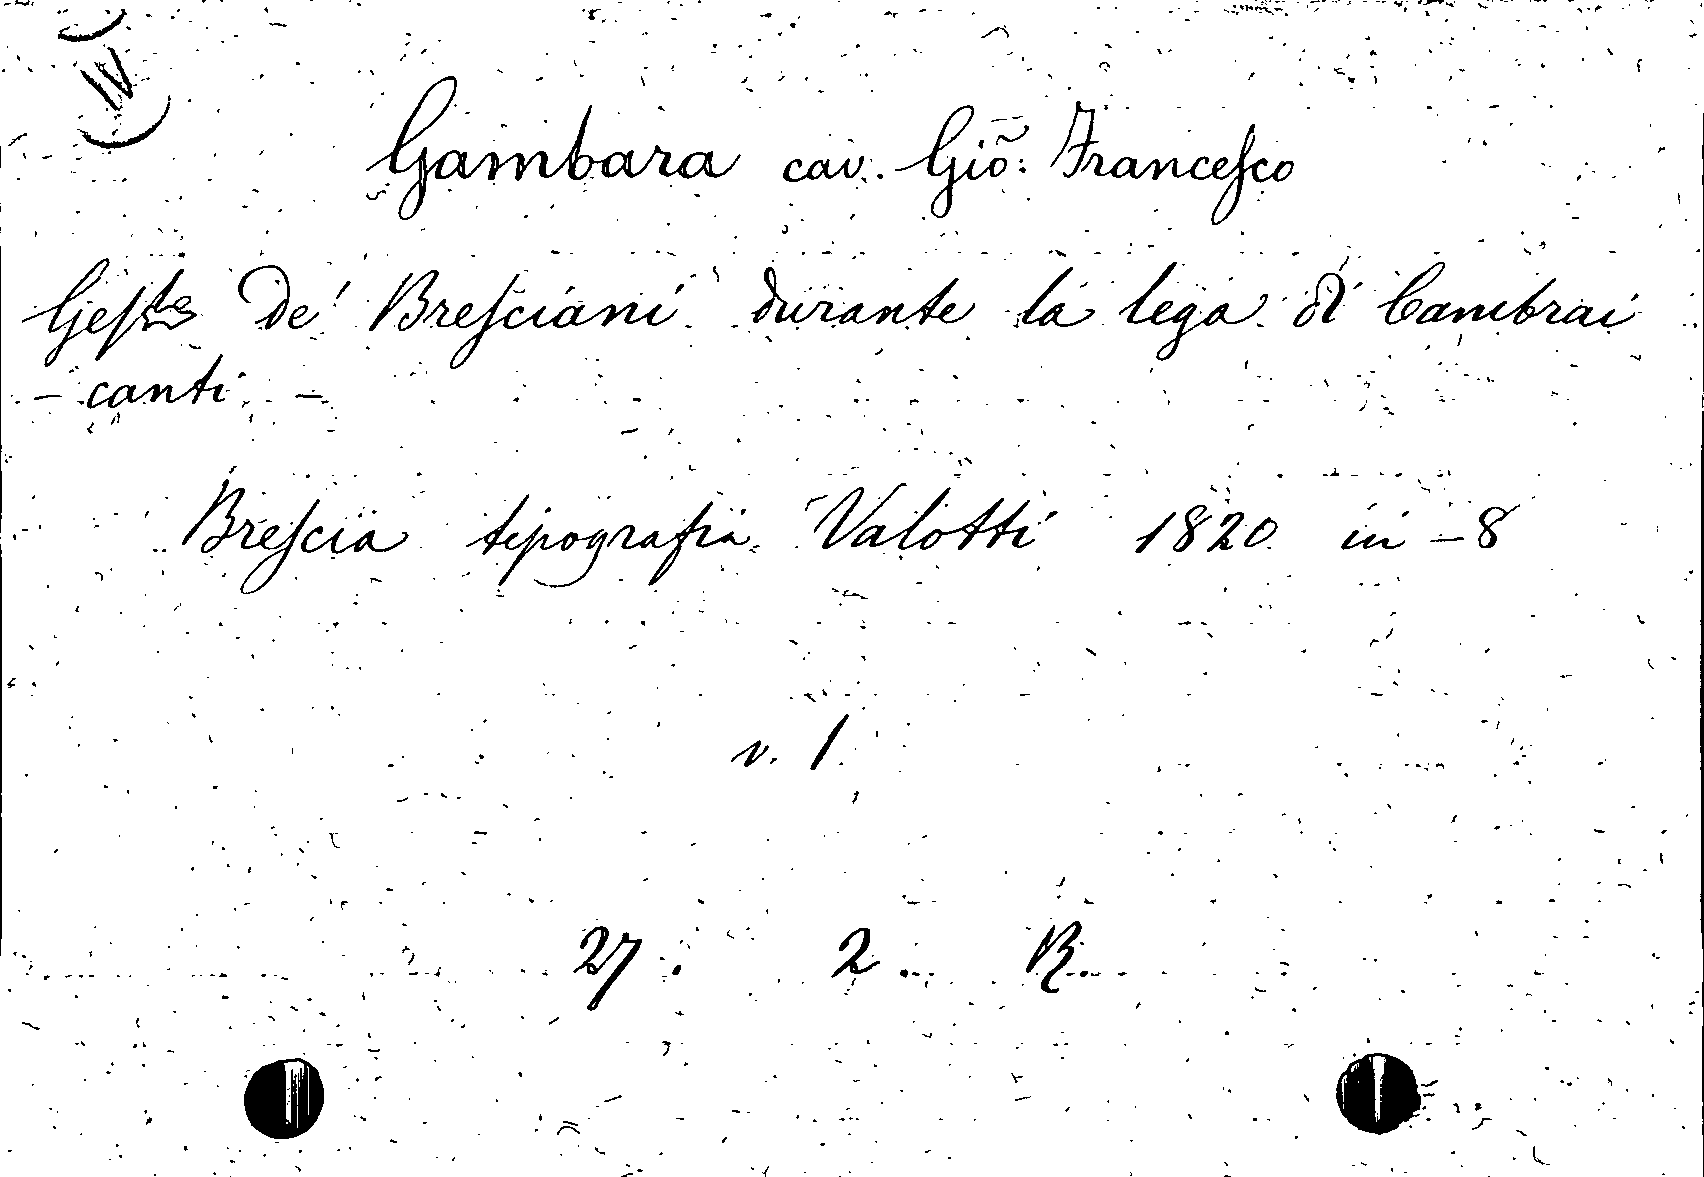 (IV)
Gambara cav. Giõ: Francesco
Geste de' Bresciani durante la lega di Cambrai
- canti -
Brescia tipografia Valotti 1820 in-8
v. 1
27. 2. R.